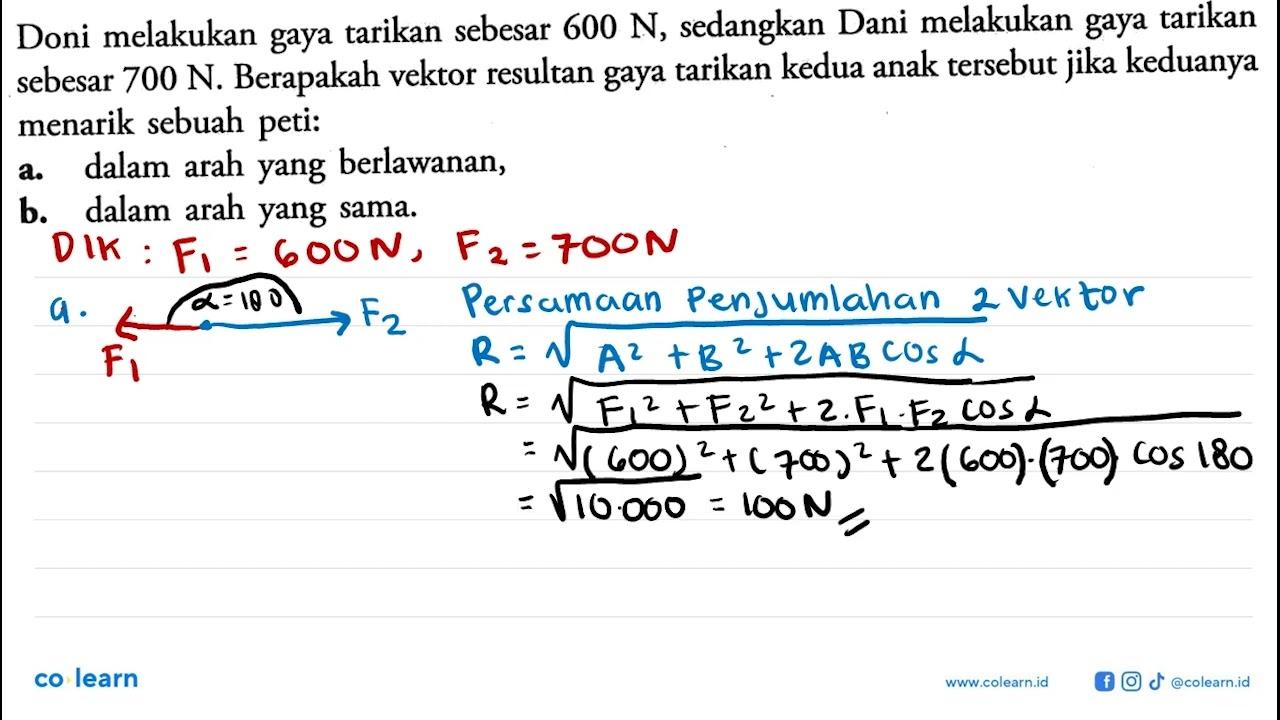 Doni melakukan gaya tarikan sebesar 600 N, sedangkan Dani melakukan gaya tarikan
sebesar 700 N. Berapakah vektor resultan gaya tarikan kedua anak tersebut jika keduanya
menarik sebuah peti:
a. dalam arah yang berlawanan,
b. dalam arah yang sama.
DIK : F₁ = 600N, F₂ = 700N
a. α = 180 F₂ Persamaan Penjumlahan 2 Vektor
F₁ R = √A² + B² + 2AB cos α
R = √F₁² + F₂² + 2.F₁.F₂ cos α
= √(600)² + (700)² + 2(600)·(700) cos 180
= √10.000 = 100N
co learn
www.colearn.id @colearn.id